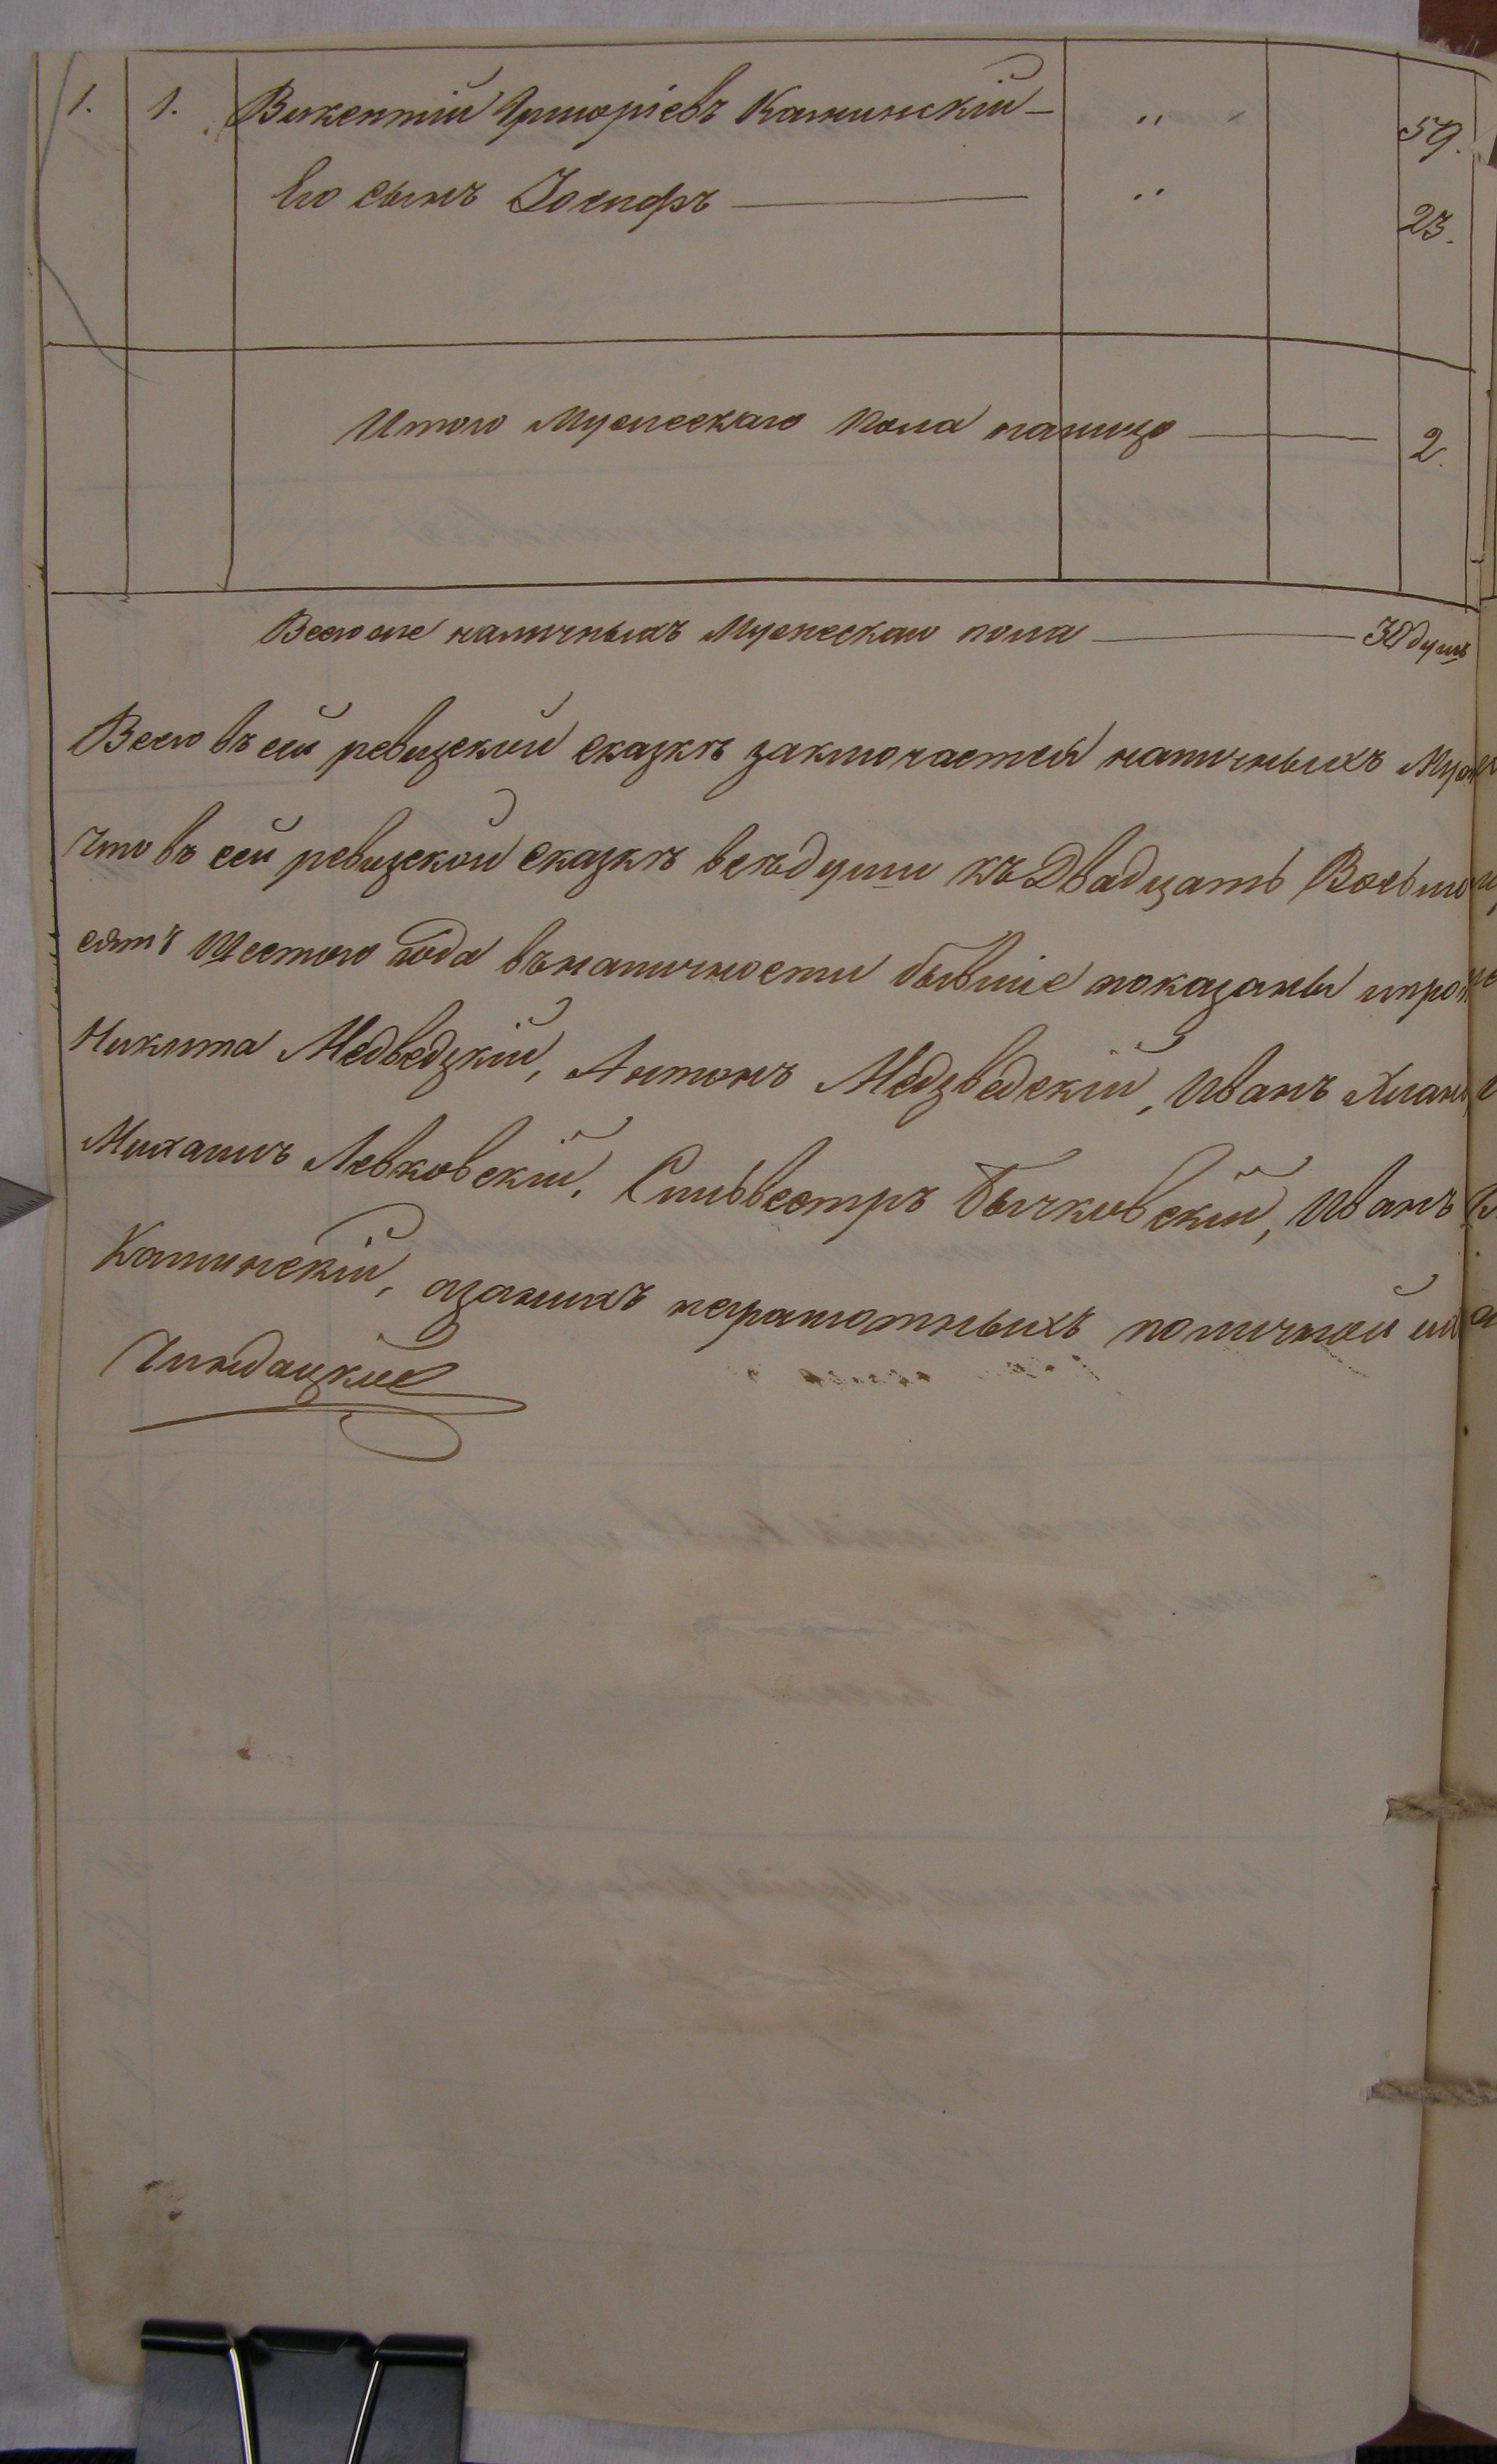 1. 1. Викентій Григоріевъ Калинскій — " 59.
Его сынъ Іосифъ — " 23.
Итого Мужескаго Пола налицо — 2.
Всего же наличныхъ Мужескаго пола — 30 душъ
Всего въ сей ревизской сказкѣ заключается наличныхъ Муж
Что въ сей ревизской сказкѣ всѣ души къ Двадцать Восьмо
сятъ Шестого года въ наличности бывшіе показаны и про
Никита Медведзкій, Антонъ Медзведскій, Иванъ
Михаилъ Левковскій, Сильвестръ Бычковскій, Иванъ
Калинскій, а за нихъ неграмотныхъ по личной их